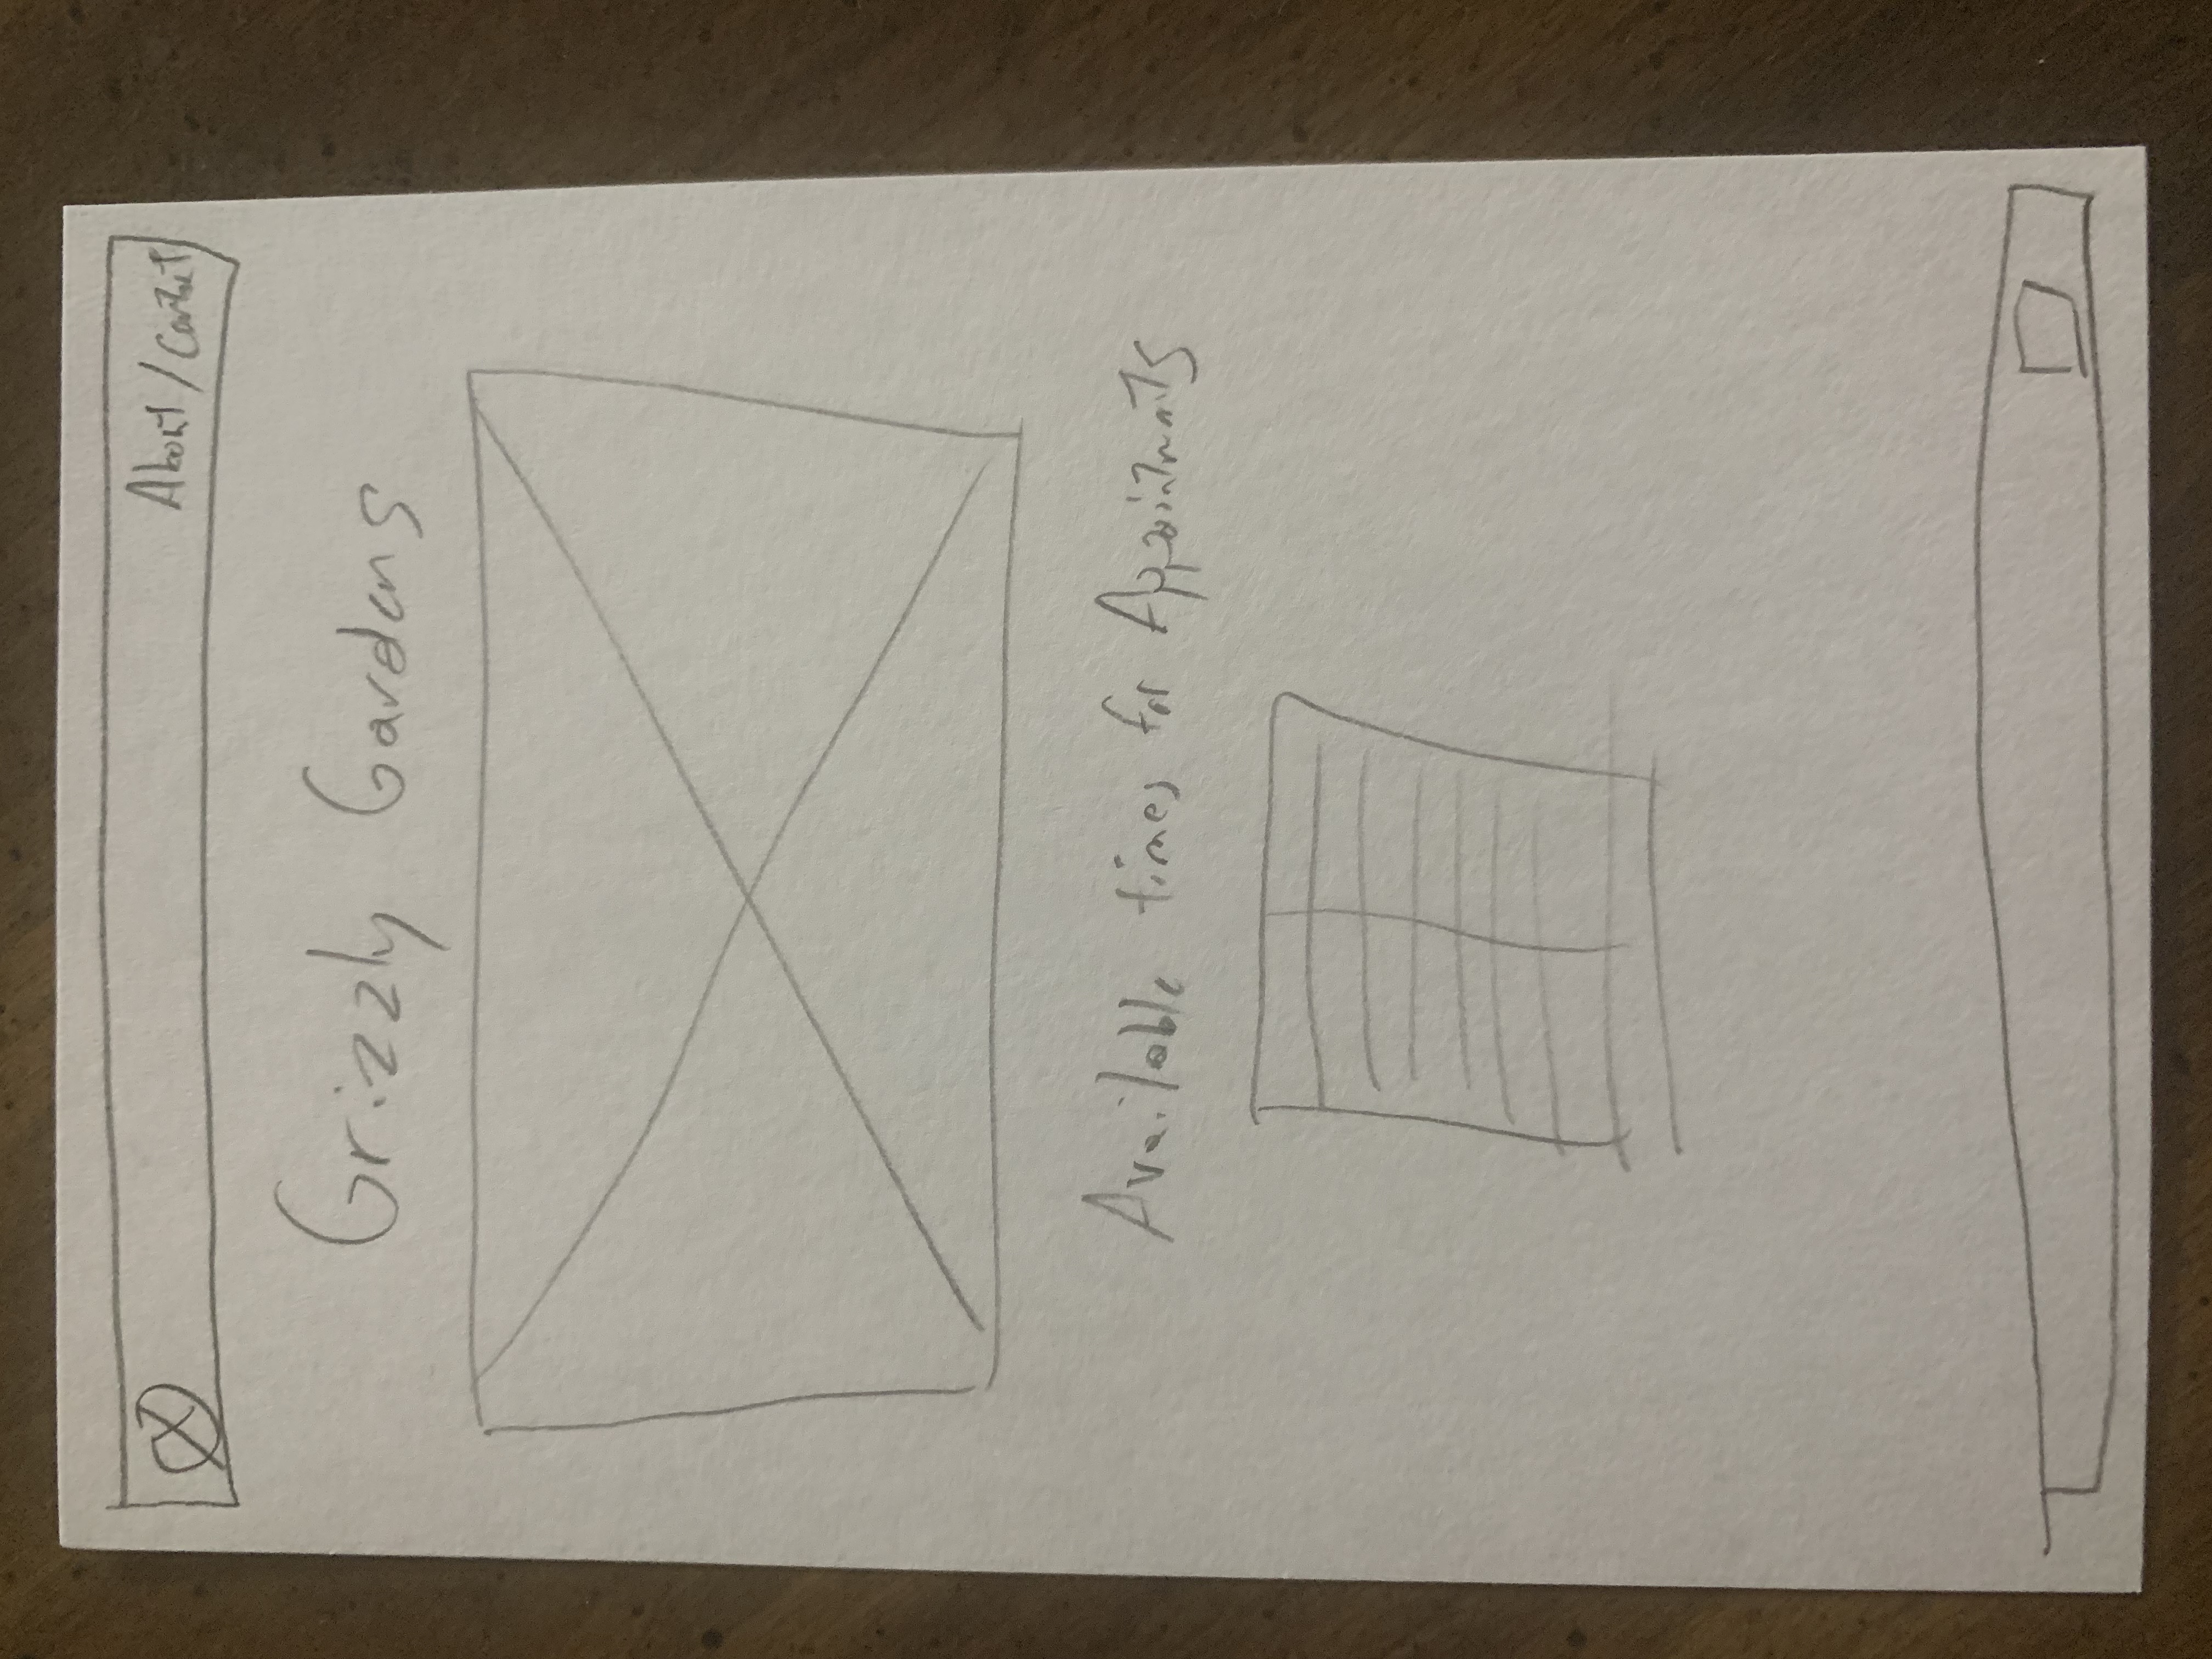 About / Contact
Grizzly Gardens
Available times for Appointments